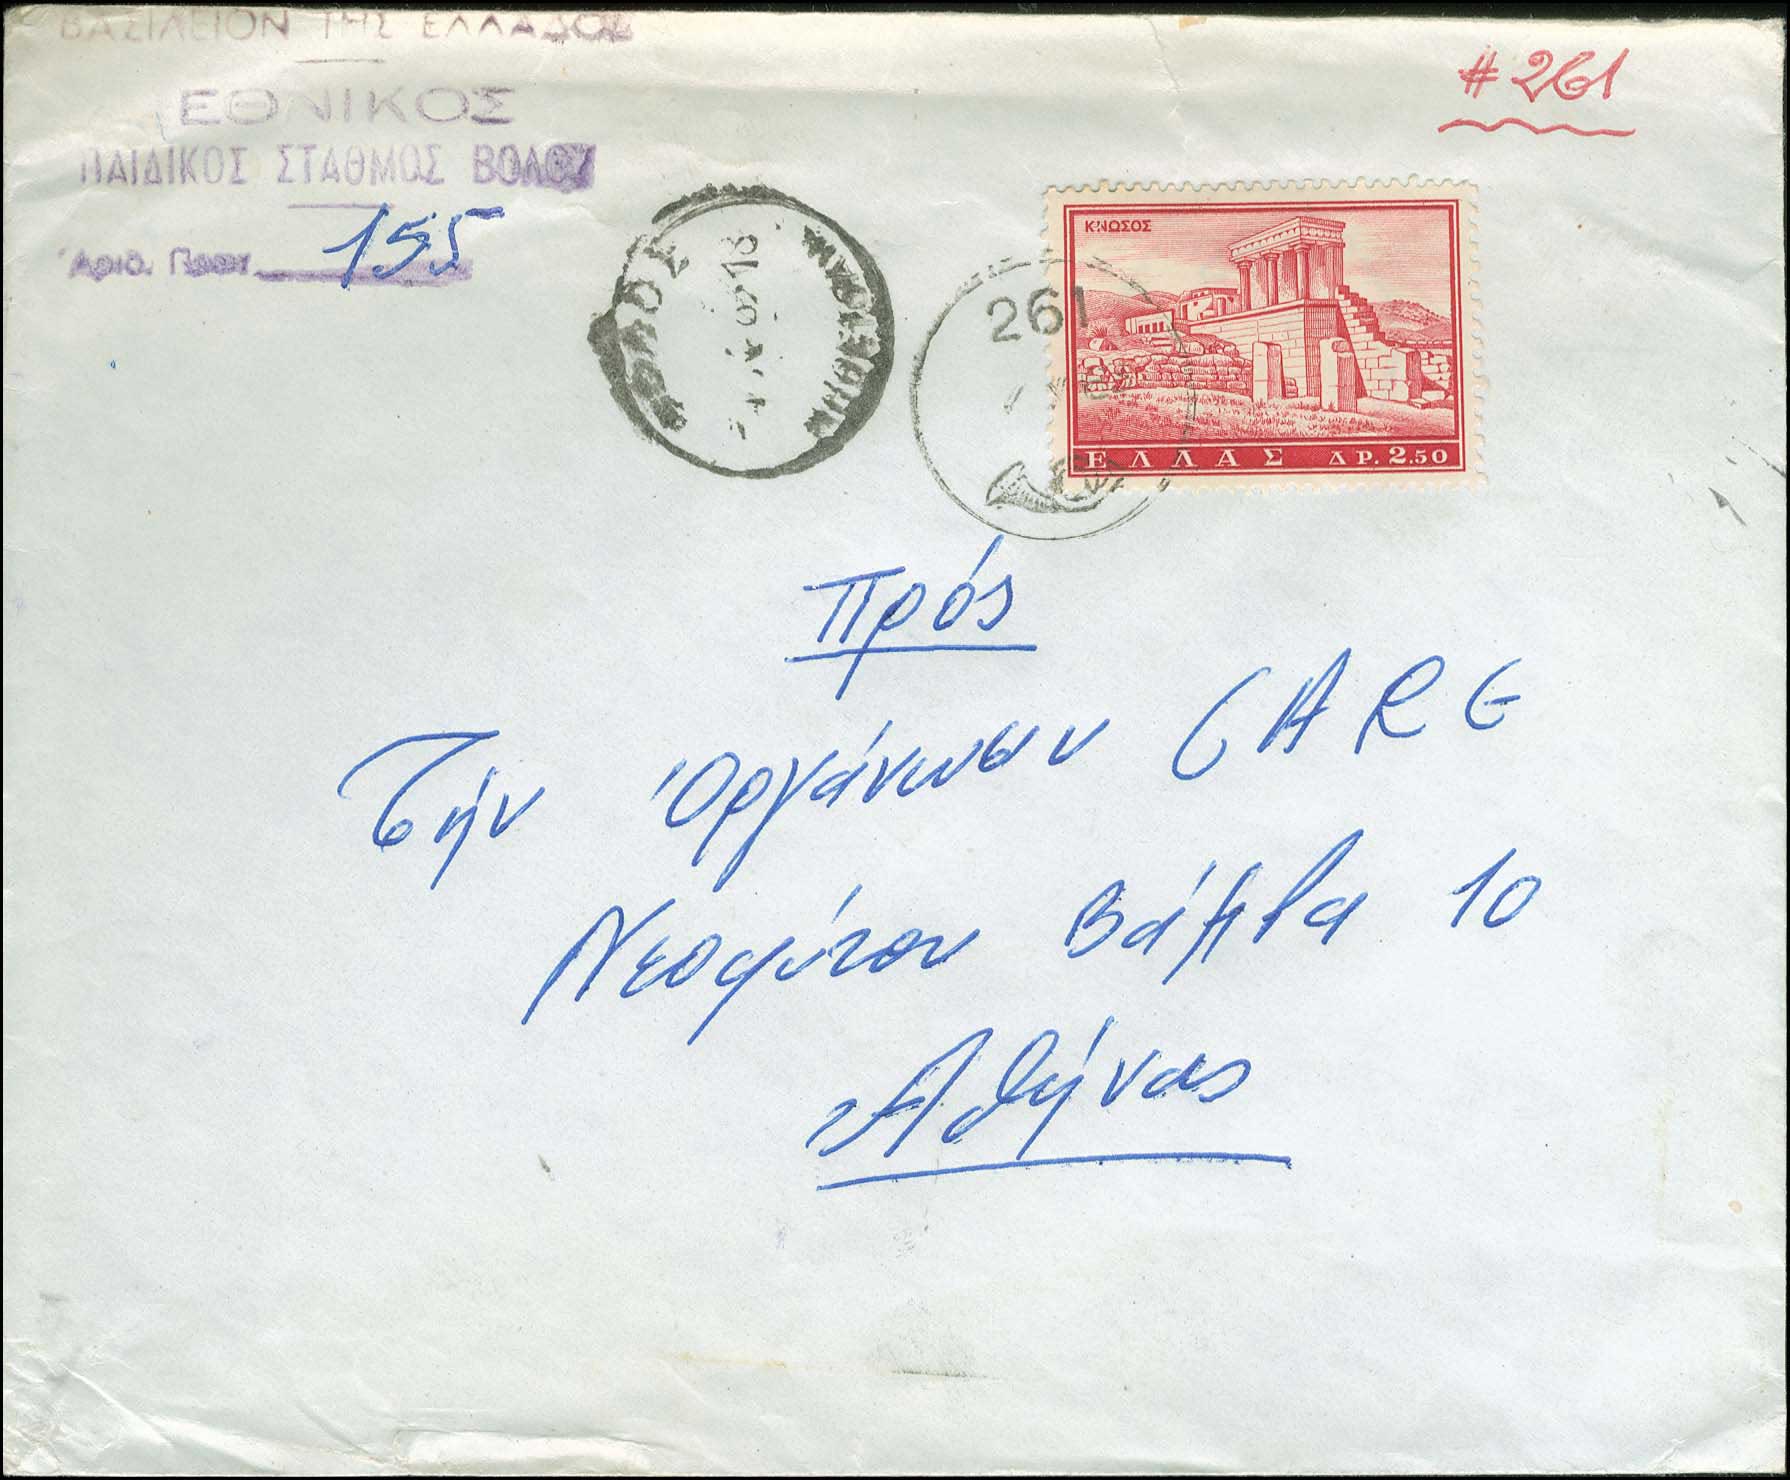 ΒΑΣΙΛΕΙΟΝ ΤΗΣ ΕΛΛΑΔΟΣ
ΕΘΝΙΚΟΣ
ΠΑΙΔΙΚΟΣ ΣΤΑΘΜΟΣ ΒΟΛΟΥ
Ἀριθ. Πρωτ. 155
#261
ΒΟΛΟΣ
261
ΚΝΩΣΟΣ
ΕΛΛΑΣ ΔΡ. 2.50
Πρός
Τήν Ὀργάνωσιν CARE
Νεοφύτου Βάμβα 10
Ἀθήνας